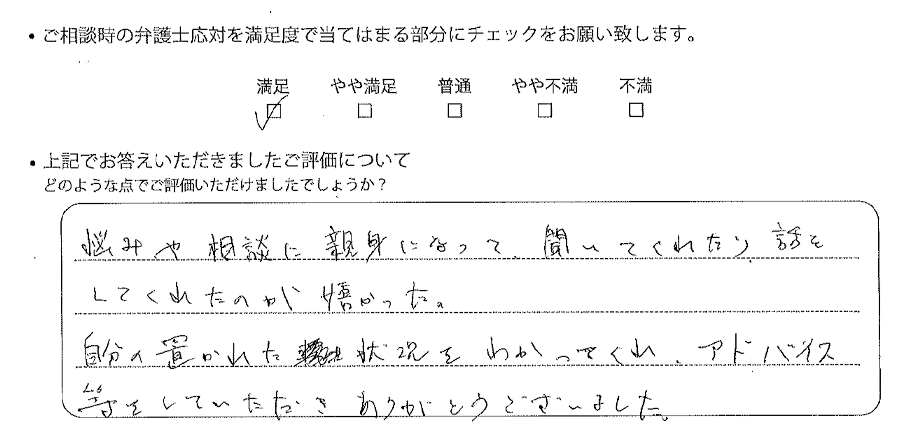 ・ご相談時の弁護士応対を満足度で当てはまる部分にチェックをお願い致します。
満足 やや満足 普通 やや不満 不満
・上記でお答えいただきましたご評価について
どのような点でご評価いただけましたでしょうか？
悩みや相談に親身になって、聞いてくれたり、話を
してくれたのが嬉かった。
自分の置かれた状況をわかってくれ、アドバイス
等をしていただきありがとうございました。